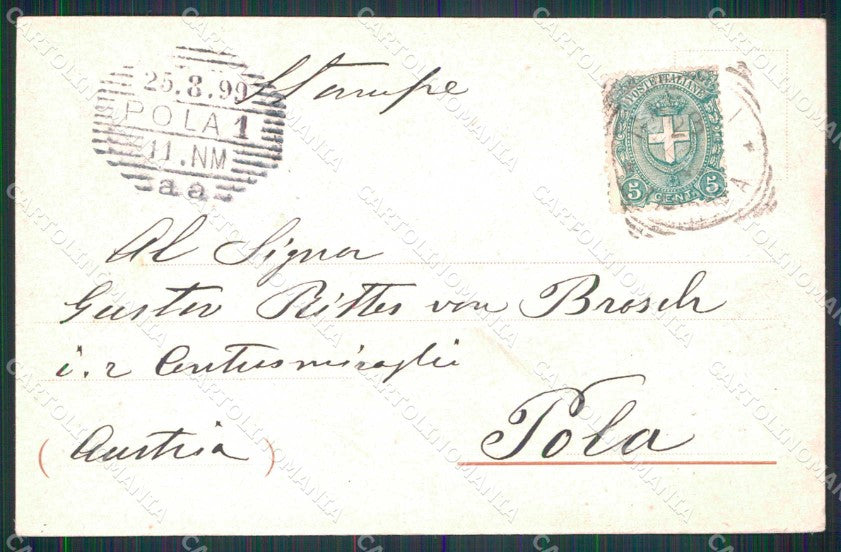 Stampe
25.8.99
POLA 1
11.NM
aa
POSTE ITALIANE
5 CENT. 5
Al Signor
Gustav Ritter von Brosch
i. r Contrammiraglio
Pola
(Austria)
CARTOLINOMANIA